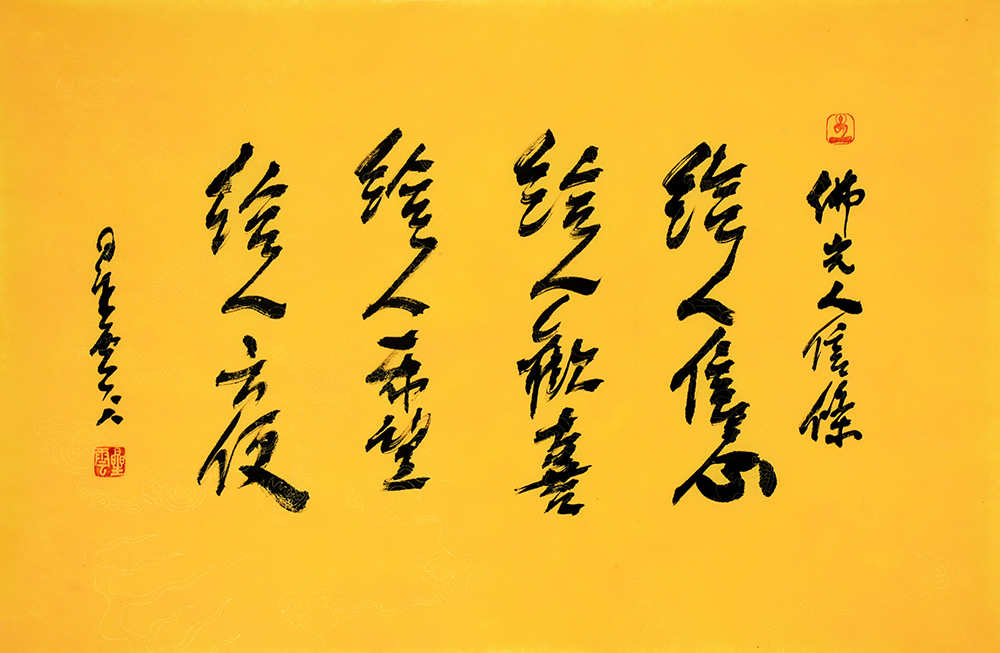 佛光人信條
給人信心
給人歡喜
給人希望
給人方便
星雲
星雲